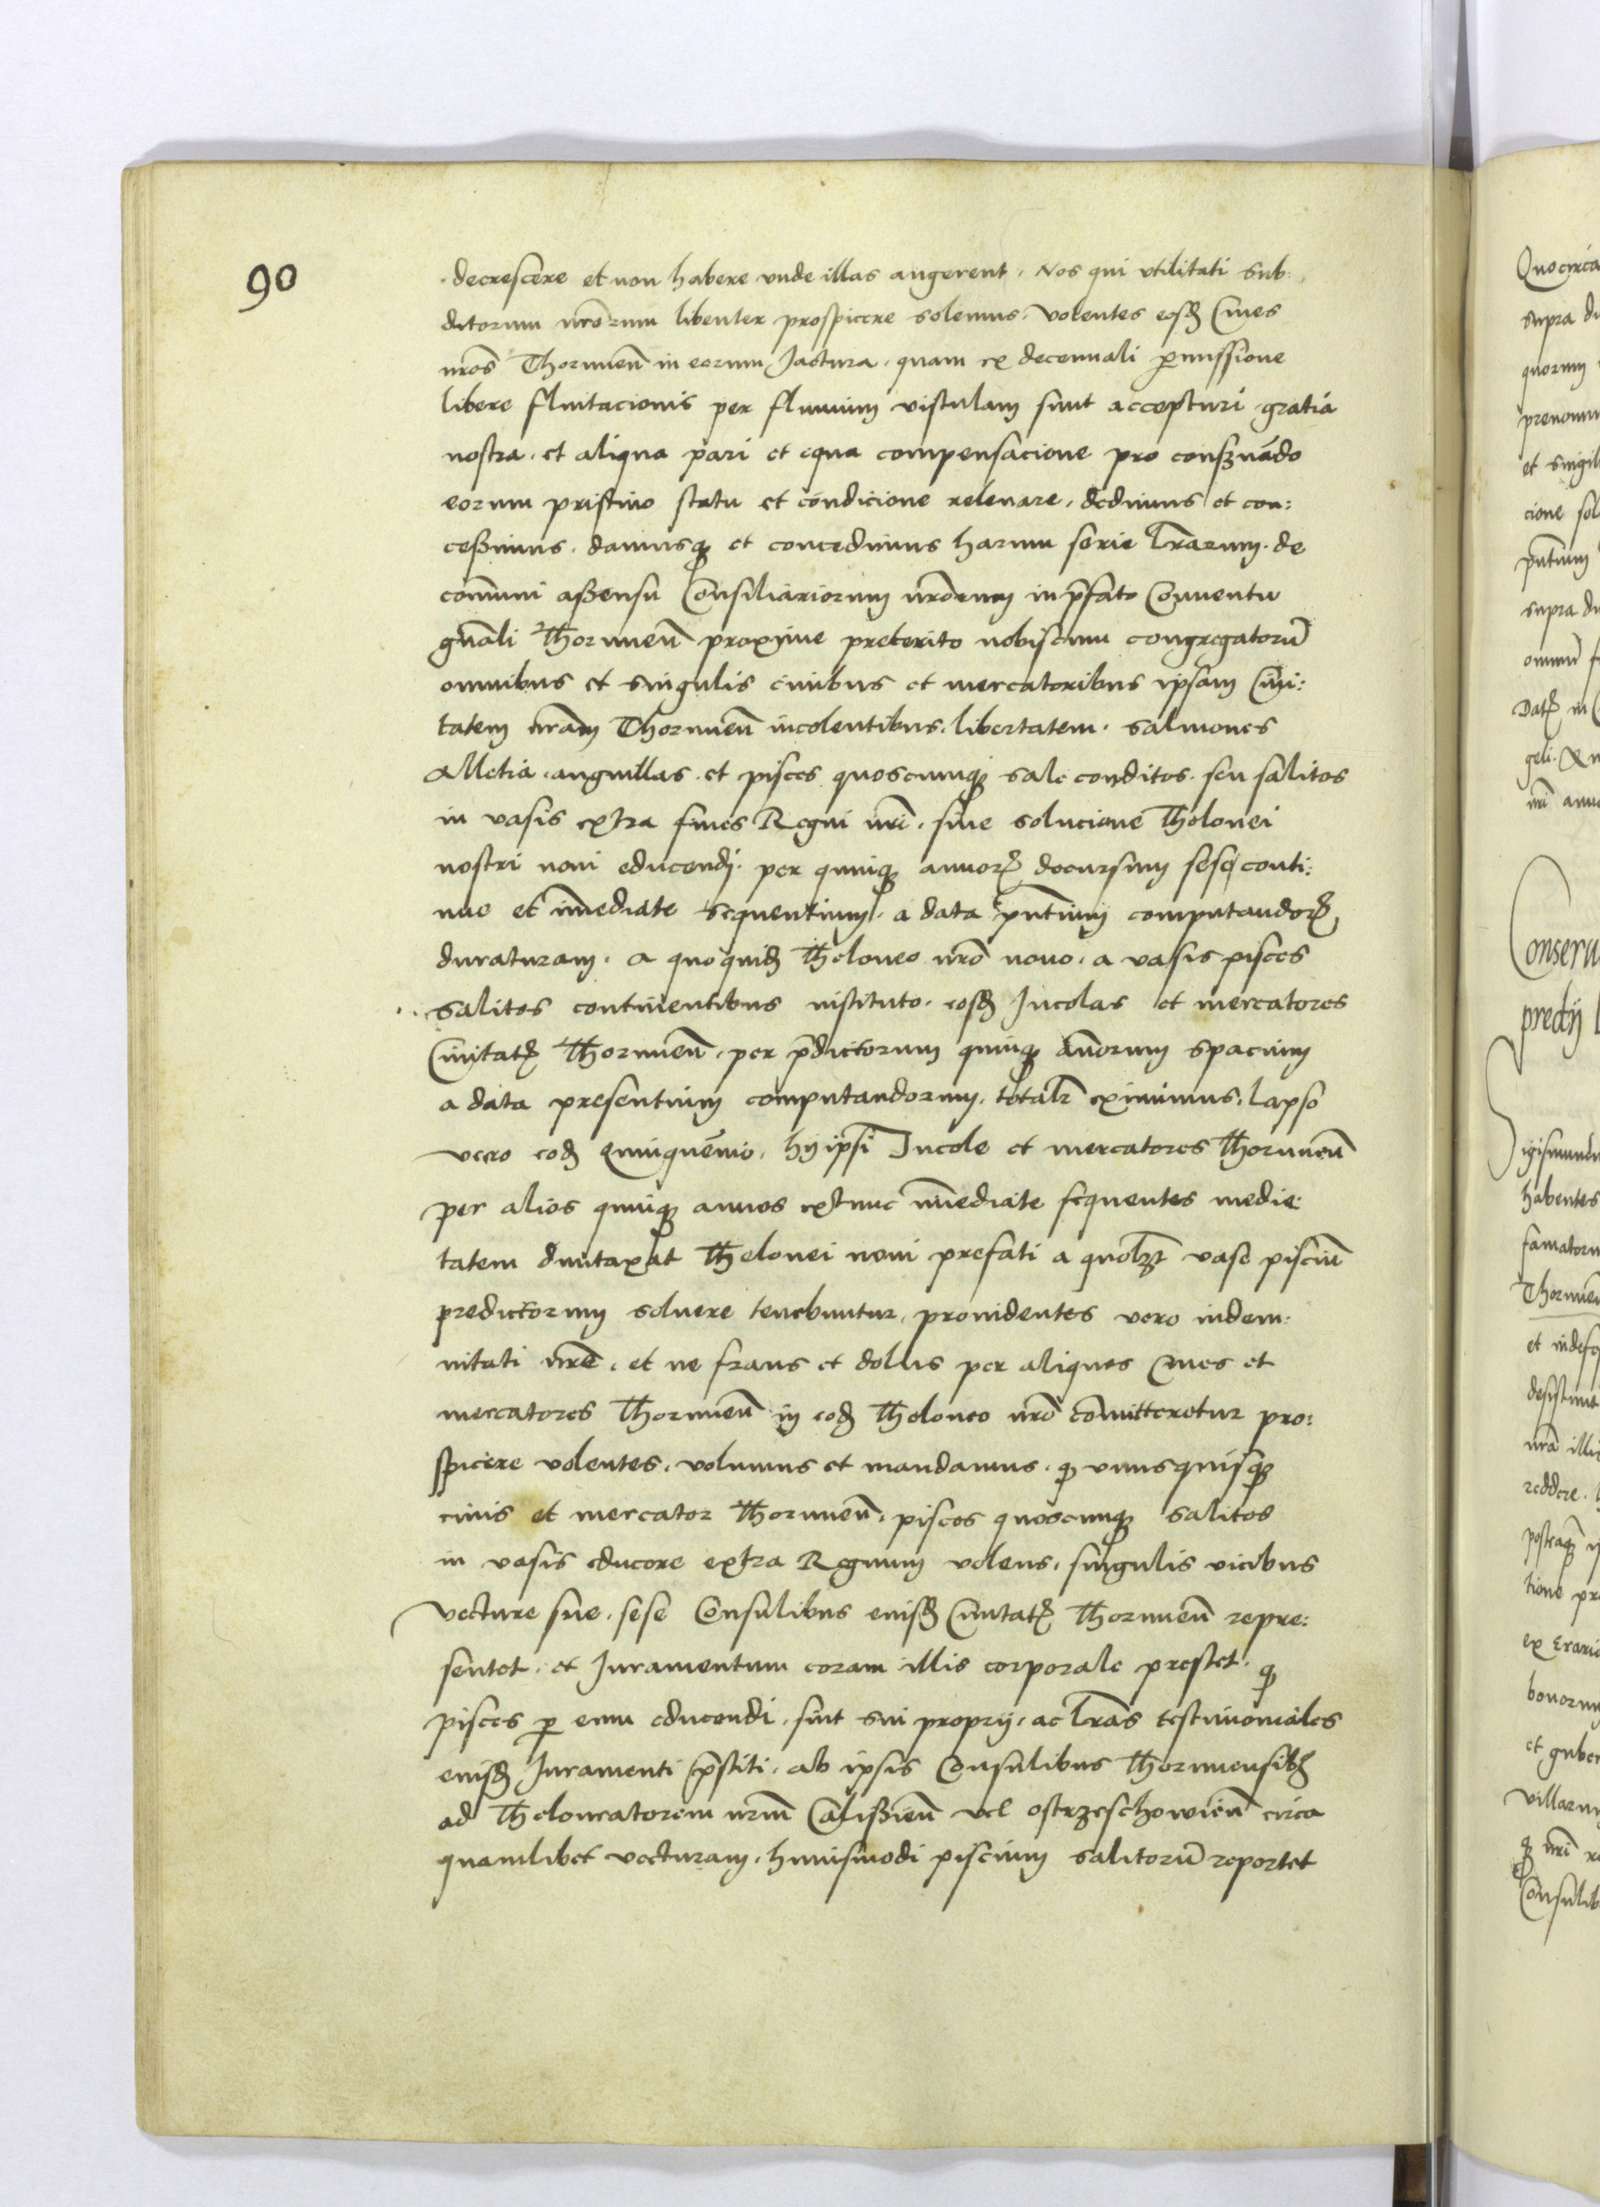 90
decrescere et non habere unde illas augerent, Nos qui utilitati sub:
ditorum nrorum libenter prospicere solemus, volentes eosd Cives
nros Thorunen in eorum Jactura, quam ex decennali pmissione
libere fluitacionis per fluvium vistulam sunt accepturi gratia
nostra, et aliqua pari et equa compensacione pro conservado
eorum pristino statu et condicione relevare, dedimus et con:
cessimus, damusq et concedimus harum serie lrarum, de
comuni assensu Consiliariorum nrorum in pfato Conventu
gnali Thorunen proxime preterito nobiscum congregatoru
omnibus et singulis civibus et mercatoribus ipsam Civi:
tatem nram Thorunen incolentibus, libertatem, salmones
Alletia, anguillas, et pisces quoscunq sale conditos, seu salitos
in vasis extra fines Regni nri, sine solucione Thelonei
nostri novi educendi, per quinq annor decursum sese conti:
nue et imediate sequentium, a data pntium computandor
duraturam, A quoquid Theloneo nro novo, a vasis pisces
salitos continentibus instituto, eosd Incolas et mercatores
Civitat Thorunen, per pdictorum quinq anorum spacium
a data presentium computandorum, totalr eximimus, Lapso
vero eod Quinquenio, hij ipsi Incole et mercatores Thorunen
per alios quinq annos extunc imediate sequentes medie
tatem duntaxat Thelonei novi prefati a quolzt vase pisciu
predictorum solvere tenebuntur, providentes vero indem:
nitati nre, et ne fraus et dolus per aliquos Cives et
mercatores Thorunen in eod Theloneo nro comitteretur pro:
spicere volentes, volumus et mandamus, q unusquisq
civis et mercator Thorunen, pisces quoscunq salitos
in vasis educere extra Regnum volens, singulis vicibus
vecture sue, sese Consulibus eiusd Civitat Thorunen repre:
sentet, et Juramentum coram illis corporale prestet, q
pisces p eum educendi, sint sui proprij, ac lras testimoniales
eiusd Juramenti pstiti, ab ipsis Consulibus Thorunensib
ad Theloneatorem nrum Calissien vel ostrzeschowien circa
quamlibet vecturam, huiusmodi piscium salitoru reportet
Quocirca
supra
quorum
et
cione
supra
geli
Conserv
predij
habentes
famatoru
Thorunen
reddere
tione
ex Erario
et guber
villarum
Consulib